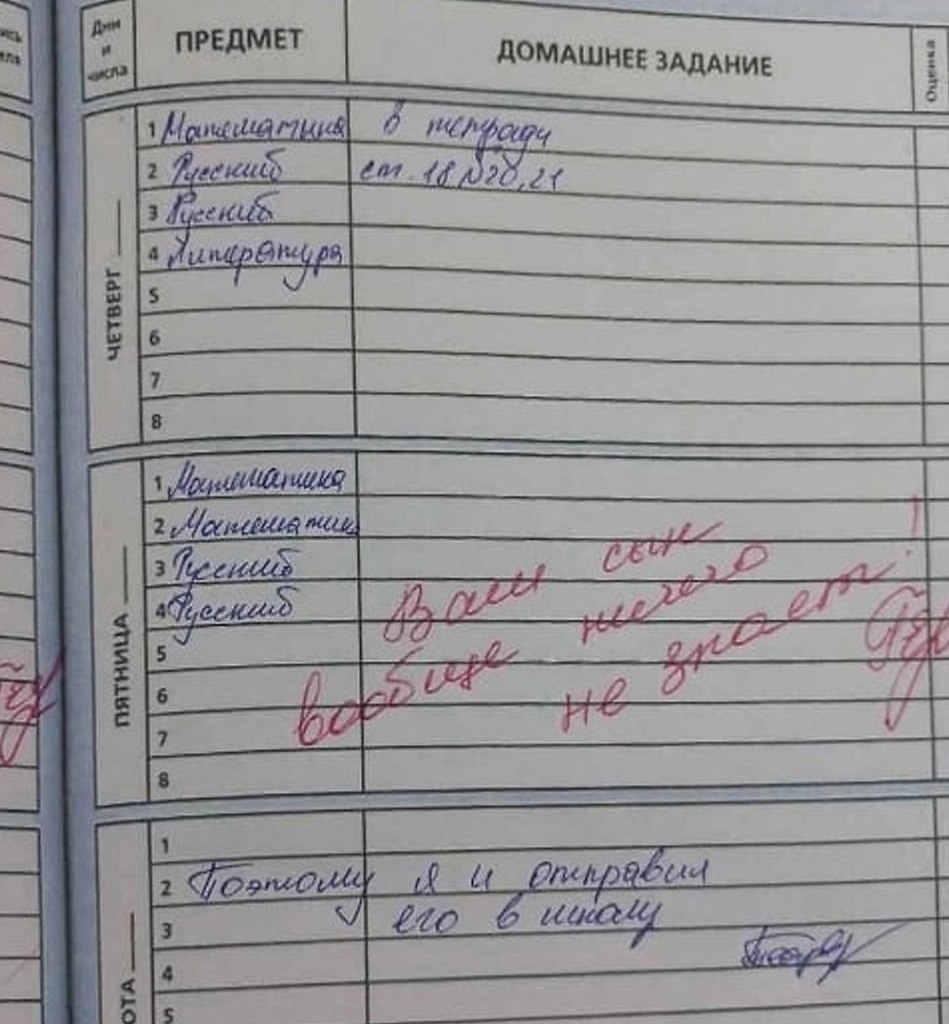 Дни и числа
ПРЕДМЕТ
ДОМАШНЕЕ ЗАДАНИЕ
Оценка
ЧЕТВЕРГ
1 Математика в тетради
2 Русский ст. 18 №20,21
3 Русский
4 Литература
5
6
7
8
ПЯТНИЦА
1 Математика
2 Математика
3 Русский
4 Русский
5
6
7
8
Ваш сын
вообще ничего
не знает!
ОТА
1
2 Поэтому я и отправил
3 его в школу
4
5